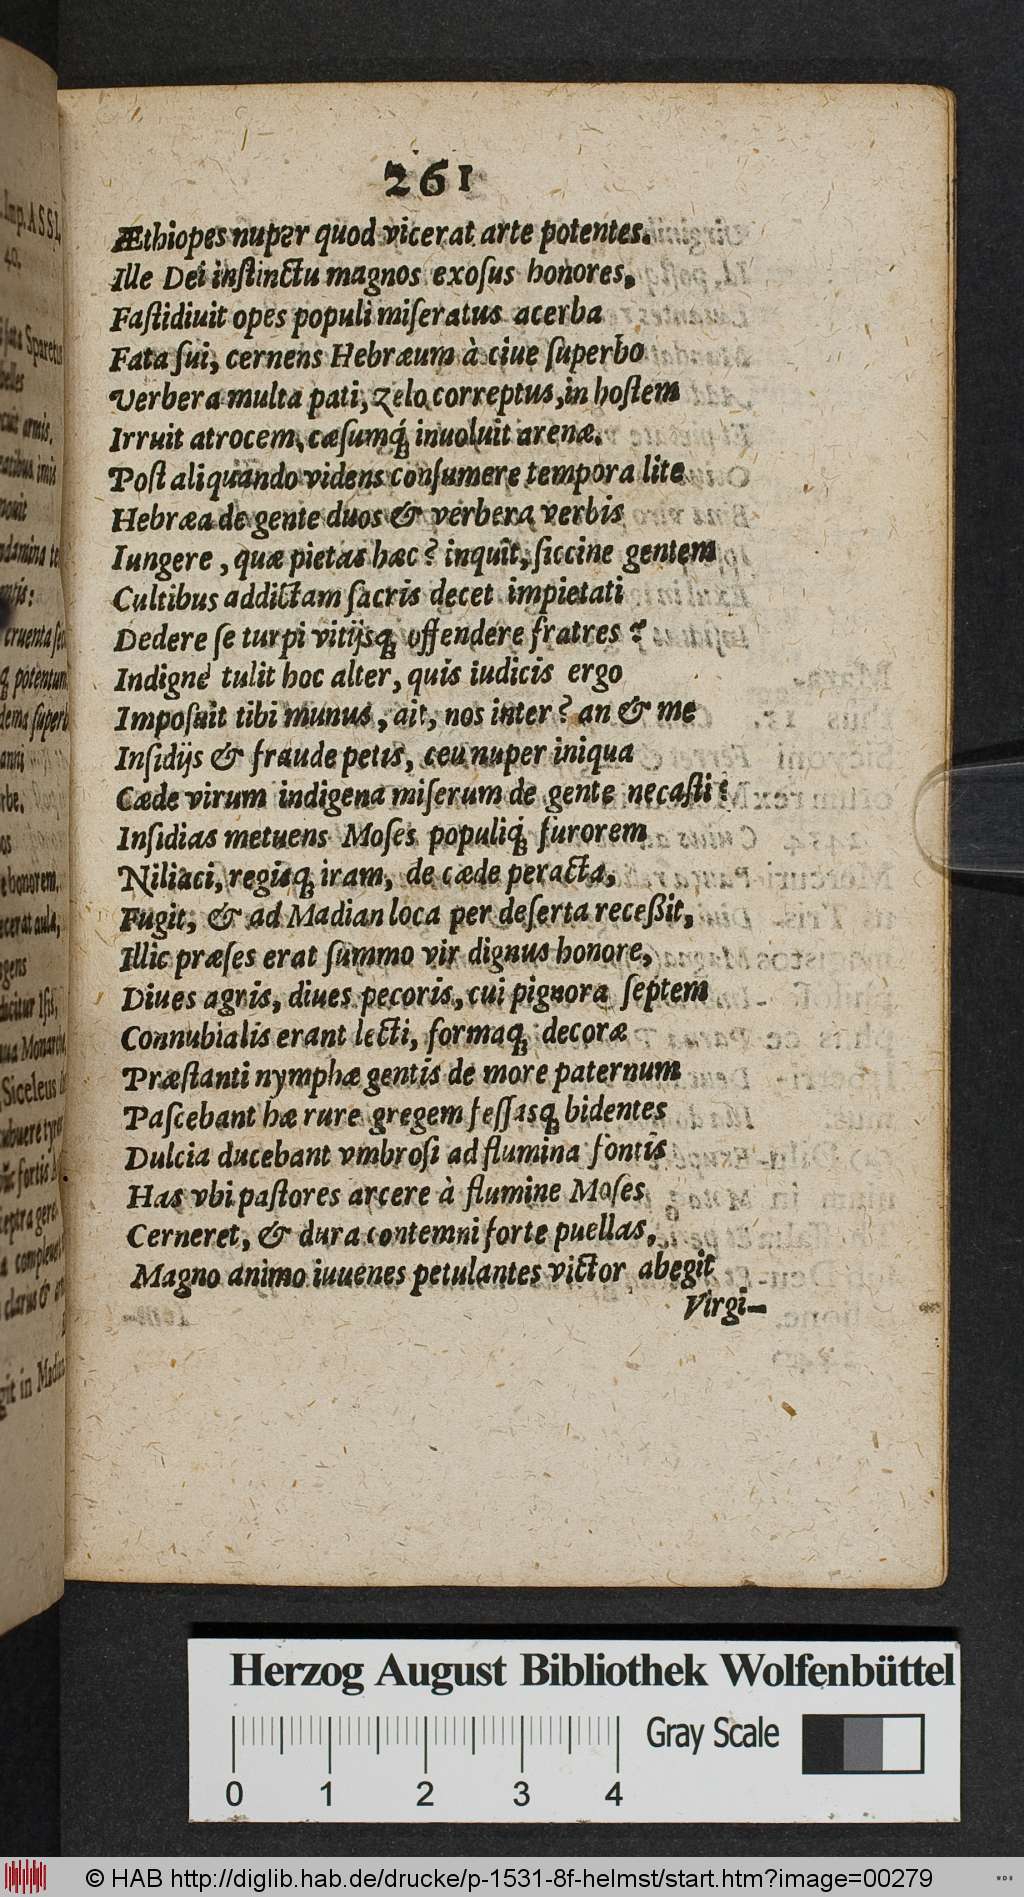 261
Æthiopes nuper quod vicerat arte potentes.
Ille Dei instinctu magnos exosus honores,
Fastidiuit opes populi miseratus acerba
Fata sui, cernens Hebræum à ciue superbo
Verbera multa pati, zelo correptus, in hostem
Irruit atrocem, cæsumq́; inuoluit arenæ.
Post aliquando videns consumere tempora lite
Hebræa de gente duos & verbera verbis
Iungere, quæ pietas hæc? inquit, siccine gentem
Cultibus addictam sacris decet impietati
Dedere se turpi vitijsq; offendere fratres?
Indignè tulit hoc alter, quis iudicis ergo
Imposuit tibi munus, ait, nos inter? an & me
Insidijs & fraude petis, ceu nuper iniqua
Cæde virum indigena miserum de gente necasti?
Insidias metuens Moses populiq́; furorem
Niliaci, regisq; iram, de cæde peracta,
Fugit, & ad Madian loca per deserta receßit,
Illic præses erat summo vir dignus honore,
Diues agris, diues pecoris, cui pignora septem
Connubialis erant lecti, formaq; decoræ
Præstanti nymphæ gentis de more paternum
Pascebant hæ rure gregem fessasq; bidentes
Dulcia ducebant vmbrosi ad flumina fontis
Has vbi pastores arcere à flumine Moses
Cerneret, & dura contemni forte puellas,
Magno animo iuuenes petulantes victor abegit
Virgi-
Herzog August Bibliothek Wolfenbüttel
Gray Scale
0 1 2 3 4
© HAB http://diglib.hab.de/drucke/p-1531-8f-helmst/start.htm?image=00279